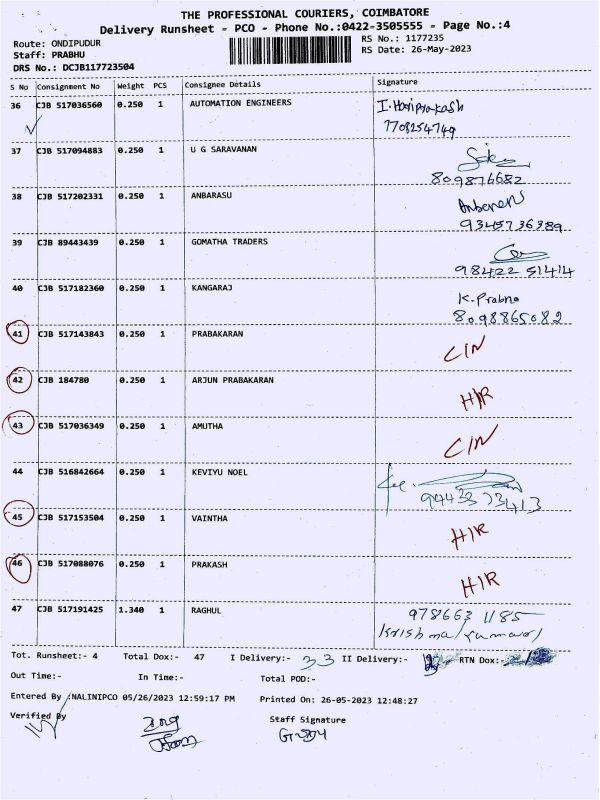 THE PROFESSIONAL COURIERS, COIMBATORE
Delivery Runsheet - PCO - Phone No.:0422-3505555 - Page No.:4
Route: ONDIPUDUR RS No.: 1177235
Staff: PRABHU RS Date: 26-May-2023
DRS No.: DCJB117723504
S No Consignment No Weight PCS Consignee Details Signature
36 CJB 517036560 0.250 1 AUTOMATION ENGINEERS I. Hariprakash
7708254749
37 CJB 517094883 0.250 1 U G SARAVANAN
809876682
38 CJB 517202331 0.250 1 ANBARASU
9345736389
39 CJB 89443439 0.250 1 GOMATHA TRADERS
98422 51414
40 CJB 517182360 0.250 1 KANGARAJ K. Prabha
8098865082
41 CJB 517143843 0.250 1 PRABAKARAN C/N
42 CJB 184780 0.250 1 ARJUN PRABAKARAN H/R
43 CJB 517036349 0.250 1 AMUTHA C/N
44 CJB 516842664 0.250 1 KEVIYU NOEL
94433 73413
45 CJB 517153504 0.250 1 VAINTHA H/R
46 CJB 517088076 0.250 1 PRAKASH H/R
47 CJB 517191425 1.340 1 RAGHUL 978663 1185
Tot. Runsheet:- 4 Total Dox:- 47 I Delivery:- 33 II Delivery:- RTN Dox:-
Out Time:- In Time:- Total POD:-
Entered By :NALINIPCO 05/26/2023 12:59:17 PM Printed On: 26-05-2023 12:48:27
Verified By Staff Signature